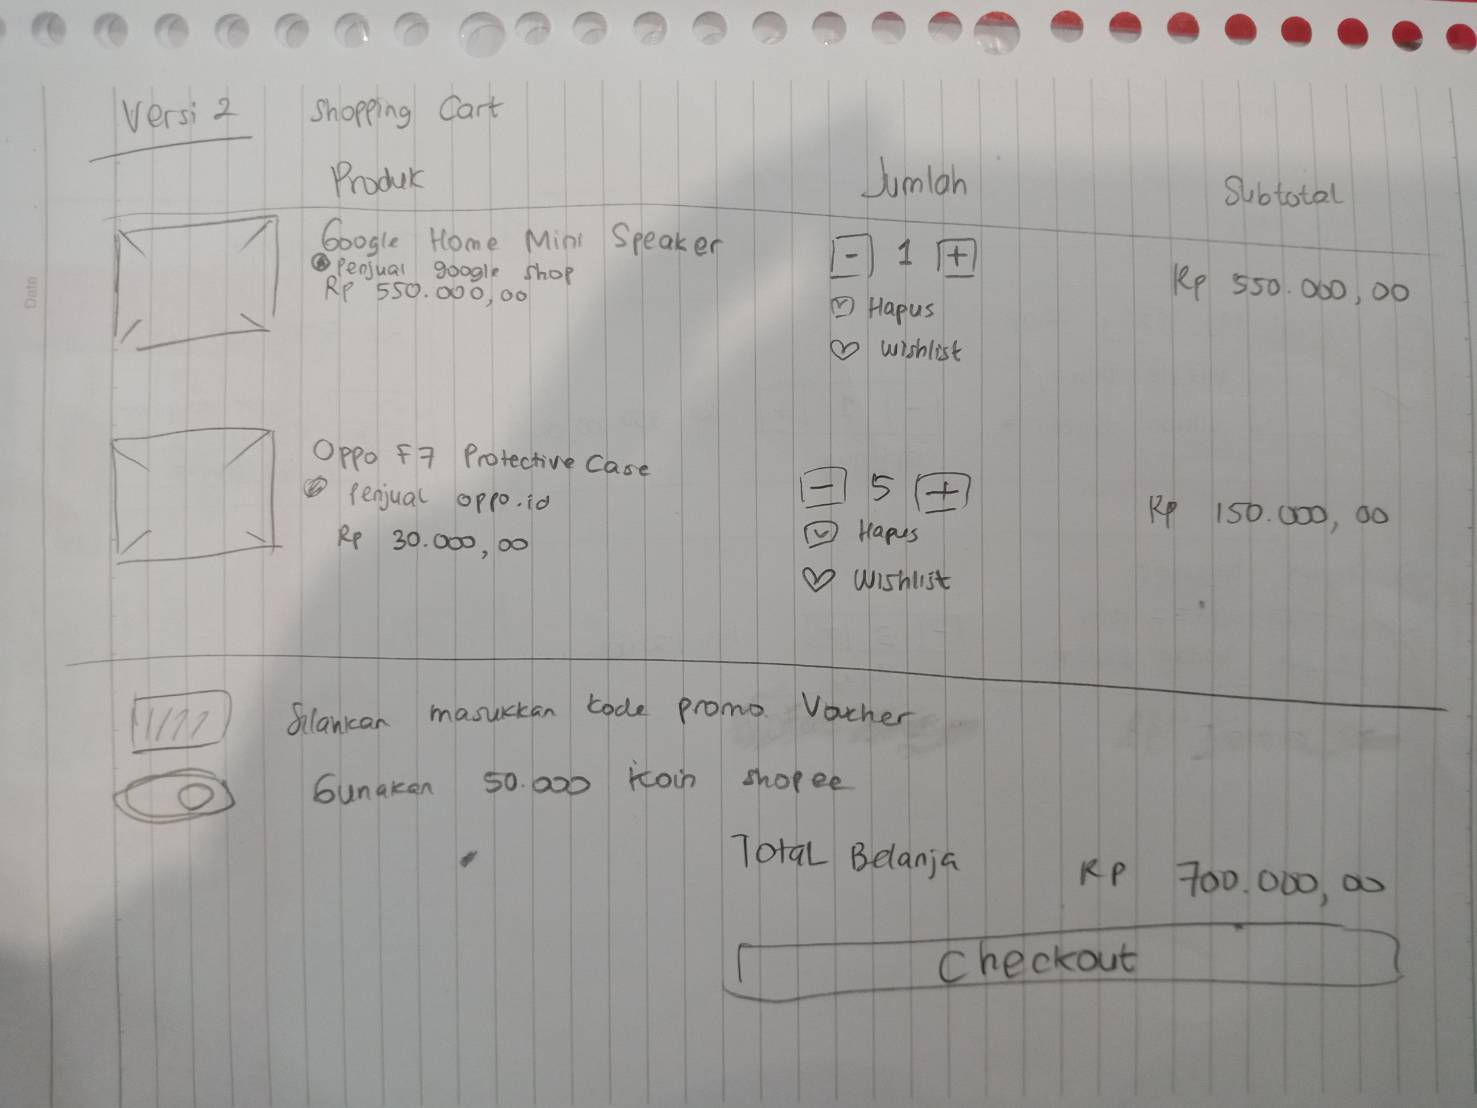 Versi 2 Shopping Cart
Produk Jumlah Subtotal
Google Home Mini Speaker
Penjual google shop
Rp 550.000,00
- 1 +
Hapus
Wishlist
Rp 550.000,00
Oppo F7 Protective Case
Penjual oppo.id
Rp 30.000,00
- 5 +
Hapus
Wishlist
Rp 150.000,00
Silahkan masukkan kode promo Voucher
Gunakan 50.000 koin shopee
Total Belanja Rp 700.000,00
Checkout
Date